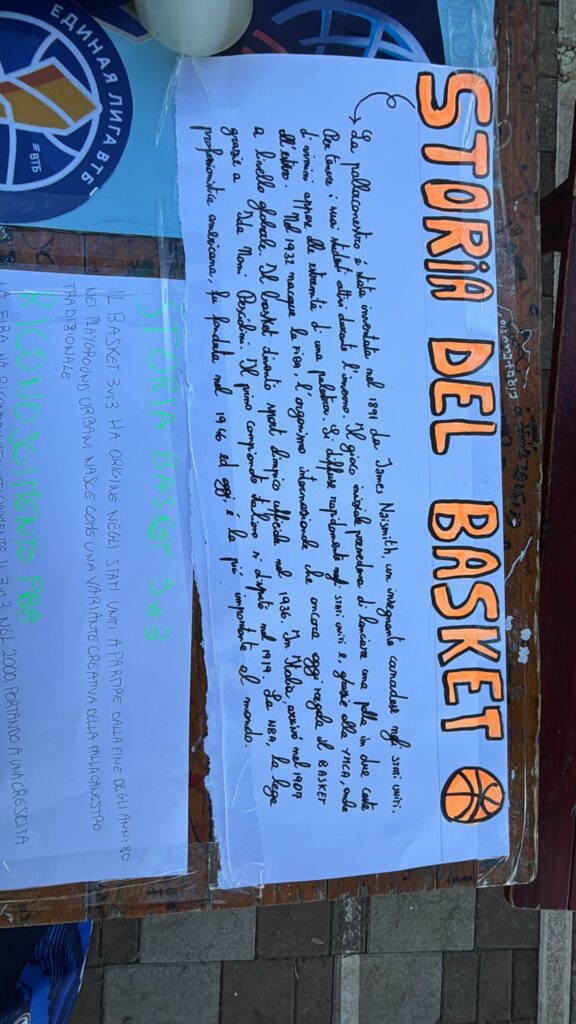 STORIA DEL BASKET
La pallacanestro è stata inventata nel 1891 da James Naismith, un insegnante canadese negli STATI UNITI.
Per tenere i suoi studenti attivi durante l'inverno. Il gioco iniziale prevedeva di lanciare una palla in due ceste
d'vimini appese alle estremità d'una palestra. Si diffuse rapidamente negli STATI UNITI e, grazie alla YMCA, anche
all'estero. Nel 1932 nacque la FIBA, l'organismo internazionale che ancora oggi regola il BASKET
a livello globale. Il basket diventò sport olimpico ufficiale nel 1936. In Italia, arrivò nel 1907
grazie a Ida Nomi Pesciolini. Il primo campionato italiano si disputò nel 1919. La NBA, la lega
professionistica americana, fu fondata nel 1946 ed oggi è la più importante al mondo.
STORIA BASKET 3VS3
IL BASKET 3VS3 HA ORIGINE NEGLI STATI UNITI A PARTIRE DALLA FINE DEGLI ANNI 80
NEI PLAYGROUND URBANI, NASCE COME UNA VARIANTE CREATIVA DELLA PALLACANESTRO
TRADIZIONALE
RICONOSCIMENTO FIBA
LA FIBA HA RICONOSCIUTO UFFICIALMENTE IL 3VS3 NEL 2000, PORTANDO A UNA CRESCITA
ЕДИНАЯ ЛИГА ВТБ
ВТБ